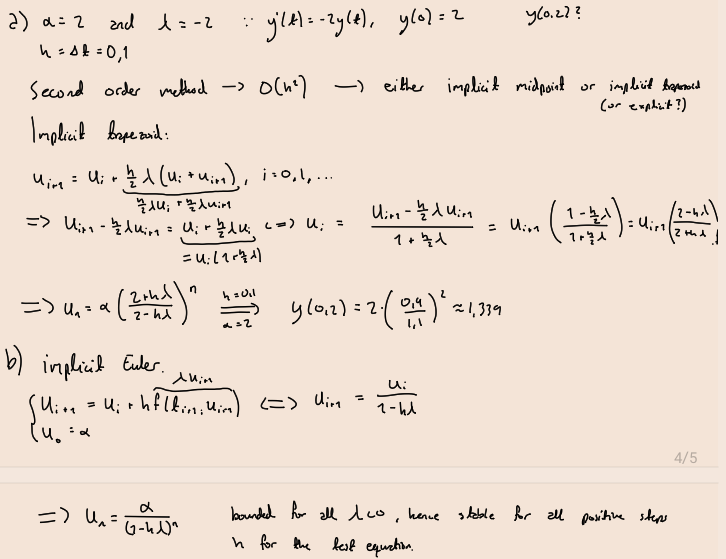 a) α = 2 and λ = -2 ∵ y'(t) = -2y(t), y(0) = 2 y(0,2)?
h = Δt = 0,1
Second order method → O(h²) → either implicit midpoint or implicit trapezoid
(or explicit?)
Implicit trapezoid:
u_{i+1} = u_i + h/2 λ (u_i + u_{i+1}), i = 0, 1, ...
h/2 λu_i + h/2 λu_{i+1}
=> u_{i+1} - h/2 λu_{i+1} = u_i + h/2 λu_i <=> u_i = (u_{i+1} - h/2 λu_{i+1}) / (1 + h/2 λ) = u_{i+1} ((1 - h/2 λ) / (1 + h/2 λ)) = u_{i+1} ((2 - hλ) / (2 + hλ))
= u_i (1 + h/2 λ)
=> u_n = α ((2 + hλ) / (2 - hλ))^n h = 0,1 ⟹ α = 2 y(0,2) = 2 · (0,9 / 1,1)² ≈ 1,339
b) implicit Euler.
λu_{i+1}
{ u_{i+1} = u_i + h f(t_{i+1}, u_{i+1}) <=> u_{i+1} = u_i / (1 - hλ)
u_0 = α
4/5
=> u_n = α / (1 - hλ)^n bounded for all λ < 0, hence stable for all positive steps
h for the test equation.